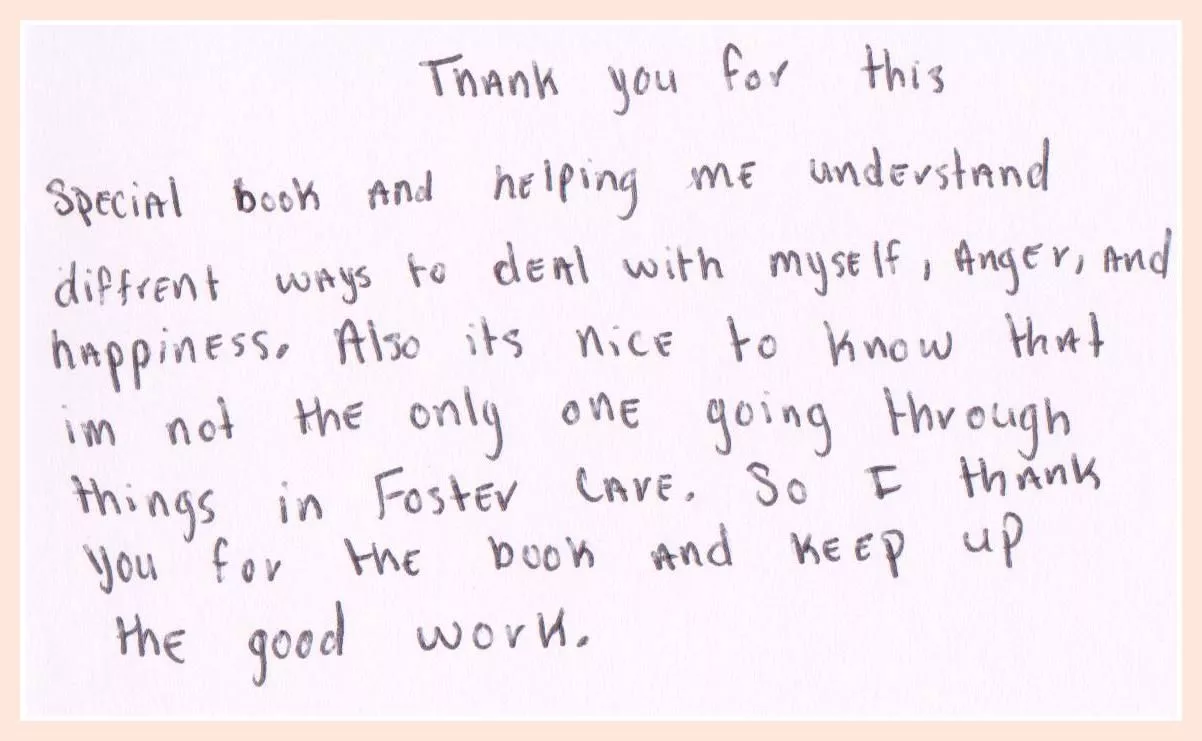 Thank you for this
special book and helping me understand
diffrent ways to deal with myself, Anger, and
happiness. Also its nice to know that
im not the only one going through
things in Foster care. So I thank
you for the book and keep up
the good work.